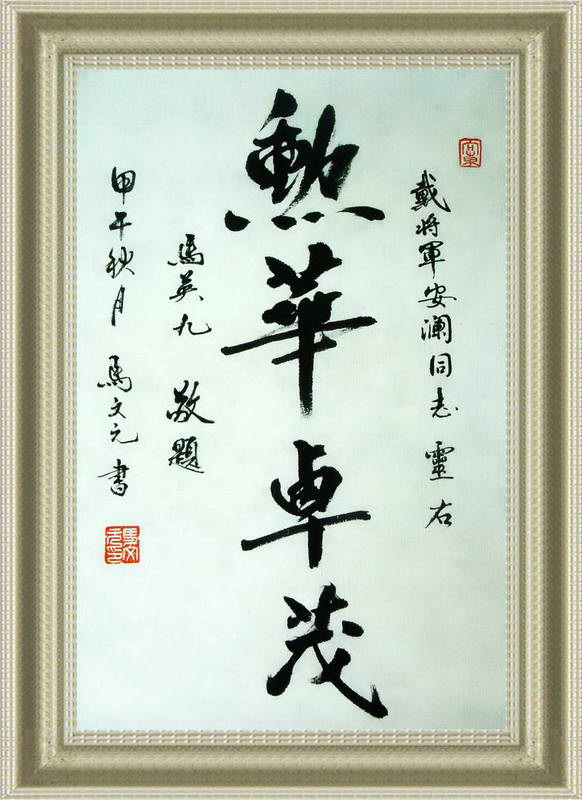 戴将軍安瀾同志 靈右
勲華卓茂
馬英九 敬題
甲午秋月 馬文元書
馬文元印